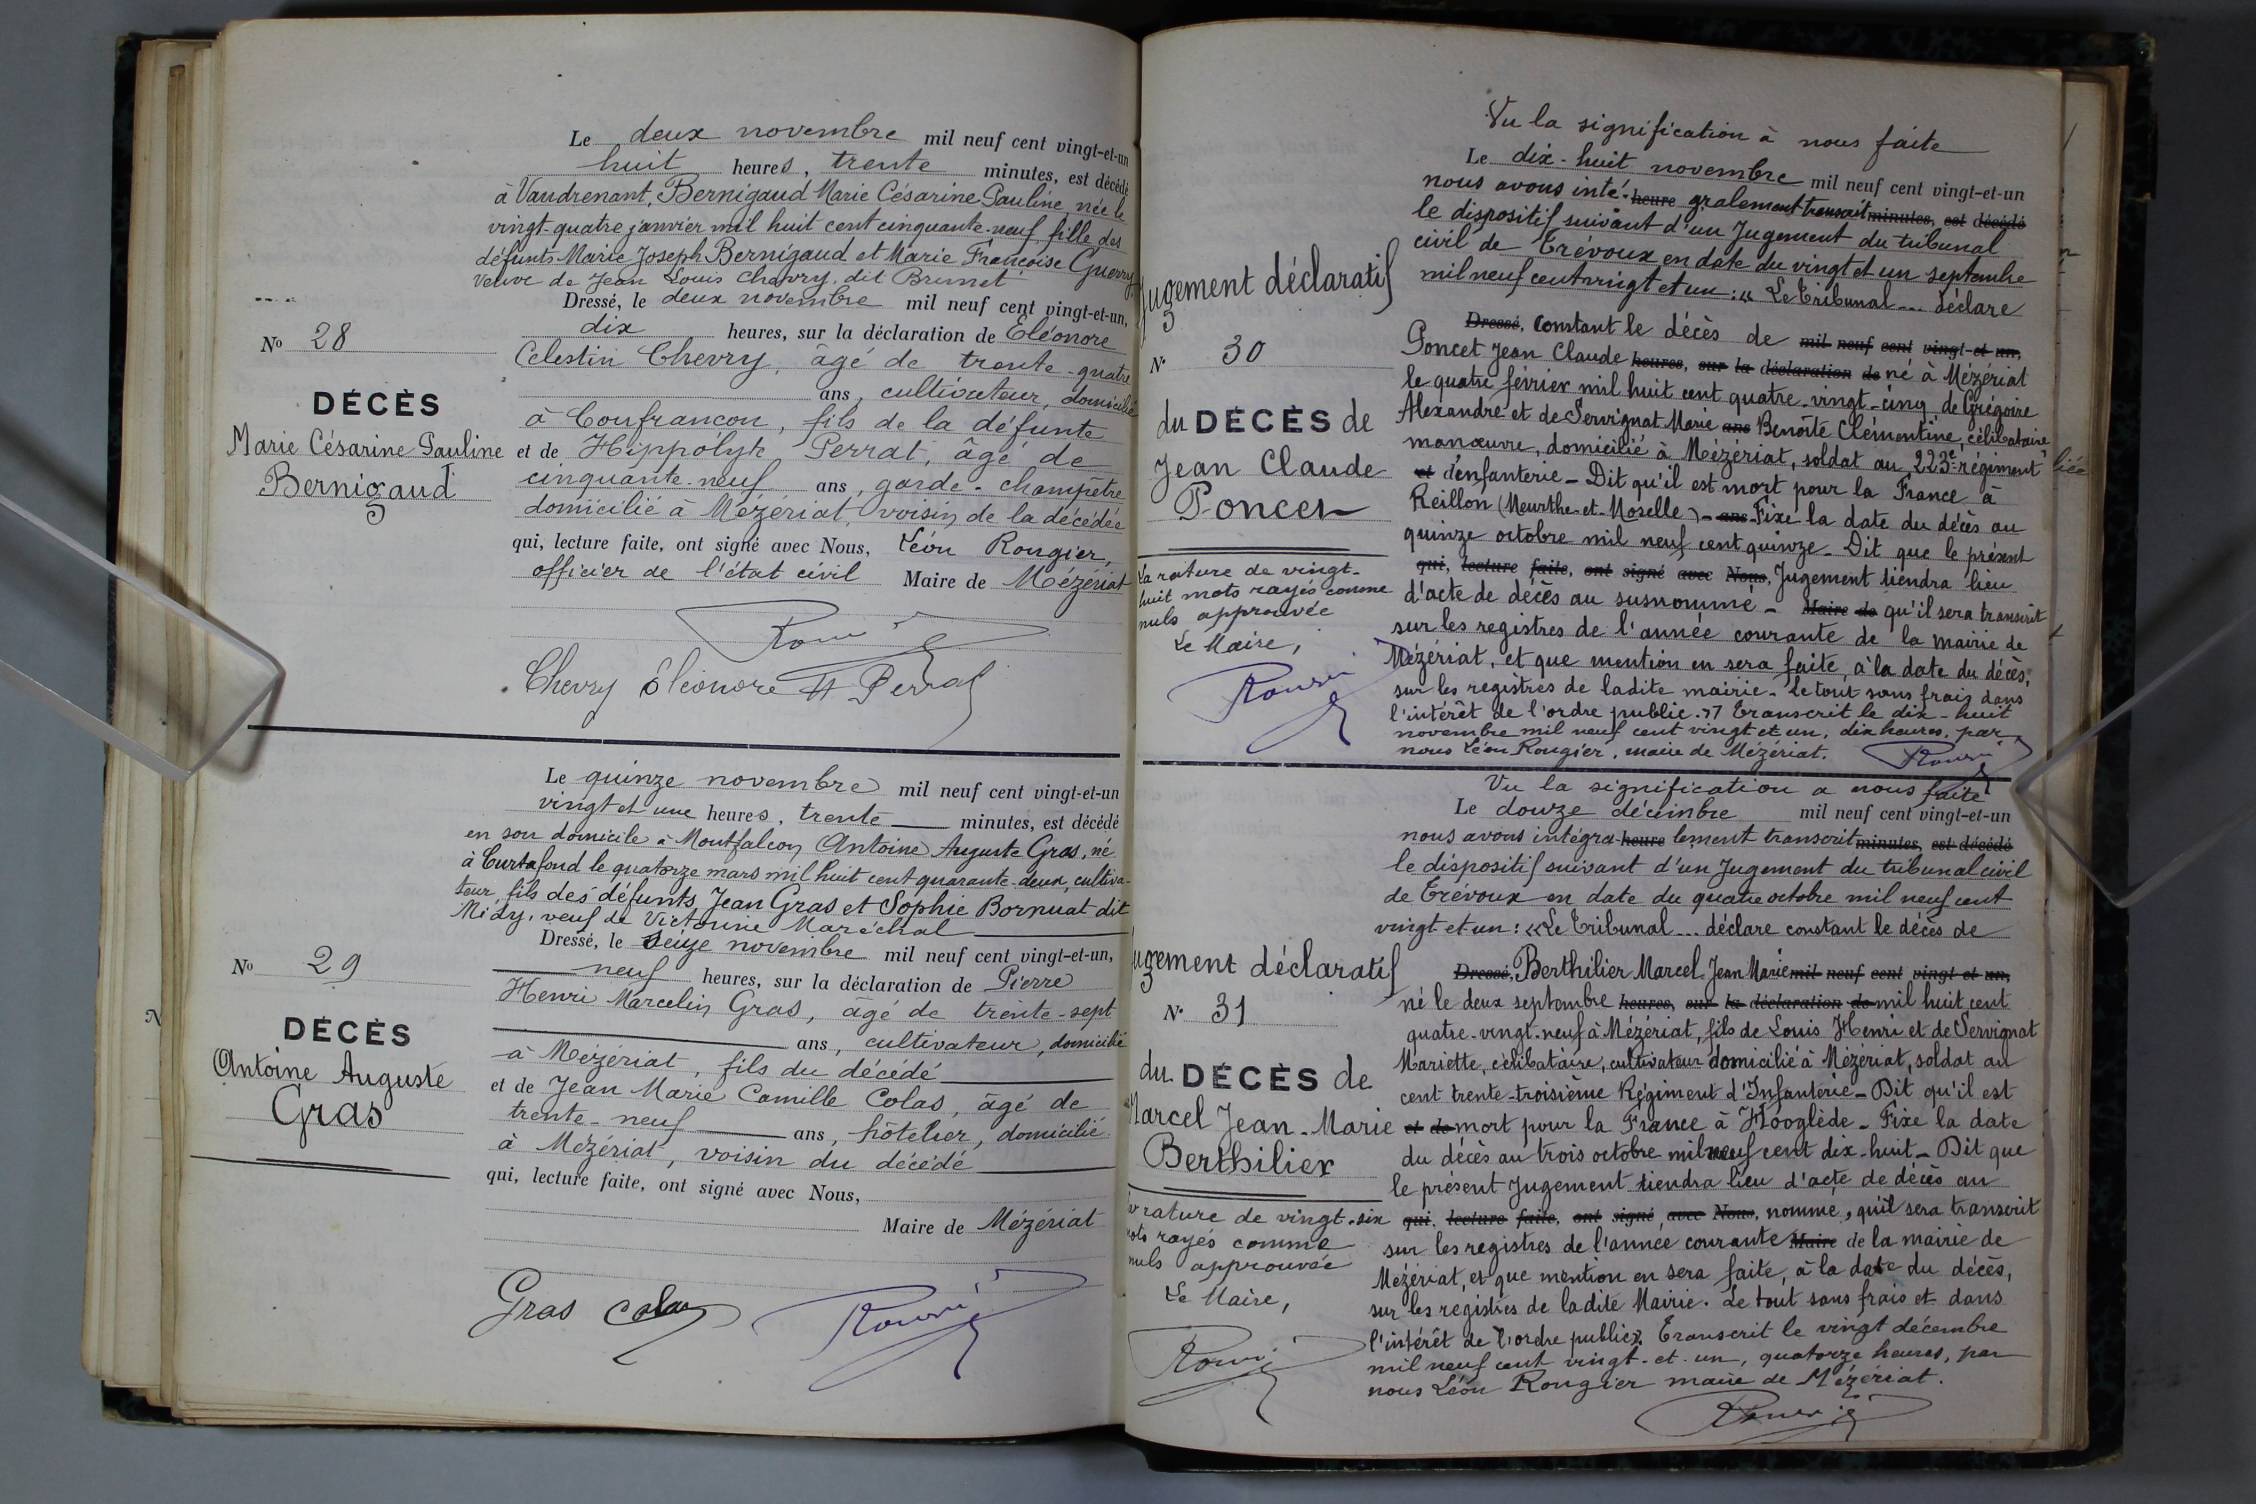 Le deux novembre mil neuf cent vingt-et-un
huit heures, trente minutes, est décédé
à Vaudrenant, Bernigaud Marie Césarine Pauline, née le
vingt-quatre janvier mil huit cent cinquante-neuf fille des
défunts Marie Joseph Bernigaud et Marie Françoise Guerry
veuve de Jean Louis Chevry, dit Brunet
Dressé, le deux novembre mil neuf cent vingt-et-un,
dix heures, sur la déclaration de Eléonore
Celestin Chevry, âgé de trente-quatre
ans, cultivateur, domicilié
à Coufrancon, fils de la défunte
et de Hippolyte Perrat, âgé de
cinquante-neuf ans, garde-champêtre
domicilié à Mézériat, voisin de la décédée
qui, lecture faite, ont signé avec Nous, Léon Rougier,
officier de l'état civil Maire de Mézériat
Chevry Eléonore H Perrat
No 28
DÉCÈS
Marie Césarine Pauline
Bernigaud
Le quinze novembre mil neuf cent vingt-et-un
vingt et une heures, trente minutes, est décédé
en son domicile à Montfalcon Antoine Auguste Gras, né
à Curtafond le quatorze mars mil huit cent quarante-deux, cultiva-
teur, fils des défunts Jean Gras et Sophie Bornuat dit
Midy, veuf de Victorine Maréchal
Dressé, le seize novembre mil neuf cent vingt-et-un,
neuf heures, sur la déclaration de Pierre
Henri Marcelin Gras, âgé de trente-sept
ans, cultivateur, domicilié
à Mézériat, fils du décédé
et de Jean Marie Camille Colas, âgé de
trente-neuf ans, hôtelier, domicilié
à Mézériat, voisin du décédé
qui, lecture faite, ont signé avec Nous,
Maire de Mézériat
Gras Colas
No 29
DÉCÈS
Antoine Auguste
Gras
Jugement déclaratif
No 30
du DÉCÈS de
Jean Claude
Poncet
La rature de vingt-
huit mots rayés comme
nuls approuvée
Le Maire,
Vu la signification à nous faite
Le dix-huit novembre mil neuf cent vingt-et-un
nous avons inté- heure gralement transcrit minutes, est décédé
le dispositif suivant d'un Jugement du tribunal
civil de Trévoux en date du vingt et un septembre
mil neuf cent vingt et un : « Le Tribunal ... déclare
Dressé, constant le décès de mil neuf cent vingt-et-un,
Poncet Jean Claude heures, sur la déclaration de né à Mézériat
le quatre février mil huit cent quatre-vingt-cinq de Grégoire
Alexandre et de Servignat Marie ans Benoîte Clémentine, célibataire
manœuvre, domicilié à Mézériat, soldat au 223e régiment
et d'infanterie - Dit qu'il est mort pour la France à
Reillon (Meurthe-et-Moselle) - ans Fixe la date du décès au
quinze octobre mil neuf cent quinze - Dit que le présent
qui, lecture faite, ont signé avec Nous, Jugement tiendra lieu
d'acte de décès au susnommé - Maire de qu'il sera transcrit
sur les registres de l'année courante de la mairie de
Mézériat, et que mention en sera faite, à la date du décès,
sur les registres de ladite mairie - le tout sans frais dans
l'intérêt de l'ordre public. » Transcrit le dix-huit
novembre mil neuf cent vingt et un, dix heures, par
nous Léon Rougier, maire de Mézériat.
Jugement déclaratif
No 31
du DÉCÈS de
Marcel Jean-Marie
Berthilier
La rature de vingt-six
mots rayés comme
nuls approuvée
Le Maire,
Vu la signification a nous faite
Le douze décembre mil neuf cent vingt-et-un
nous avons intégra- heure lement transcrit minutes, est décédé
le dispositif suivant d'un Jugement du tribunal civil
de Trévoux en date du quatre octobre mil neuf cent
vingt et un : « Le Tribunal ... déclare constant le décès de
Dressé, Berthilier Marcel Jean Marie mil neuf cent vingt et un,
né le deux septembre heures, sur la déclaration de mil huit cent
quatre-vingt-neuf à Mézériat, fils de Louis Henri et de Servignat
Mariette, célibataire, cultivateur domicilié à Mézériat, soldat au
cent trente-troisième Régiment d'Infanterie - Dit qu'il est
et de mort pour la France à Hooglède - Fixe la date
du décès au trois octobre mil neuf cent dix-huit - Dit que
le présent Jugement tiendra lieu d'acte de décès au
qui, lecture faite, ont signé avec Nous, nommé, qu'il sera transcrit
sur les registres de l'année courante Maire de la mairie de
Mézériat, et que mention en sera faite, à la date du décès,
sur les registres de ladite Mairie. Le tout sans frais et dans
l'intérêt de l'ordre public». Transcrit le vingt décembre
mil neuf cent vingt-et-un, quatorze heures, par
nous Léon Rougier maire de Mézériat.